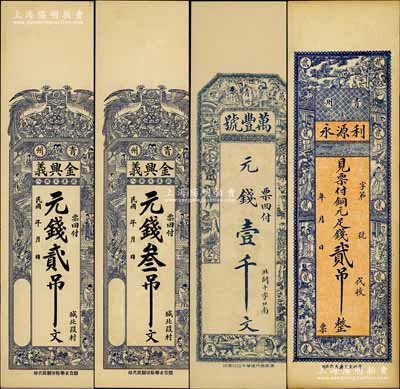 上海陽明拍賣
青州
金興義
票回付
元錢貳吊文
民國 年 月 日
城北段村
青州
金興義
票回付
元錢叁吊文
民國 年 月 日
城北段村
萬豐號
票回付
元錢壹千文
北關十字口南
青州
利源永
字第 號
見票付銅元足錢貳吊整
年 月 日 票